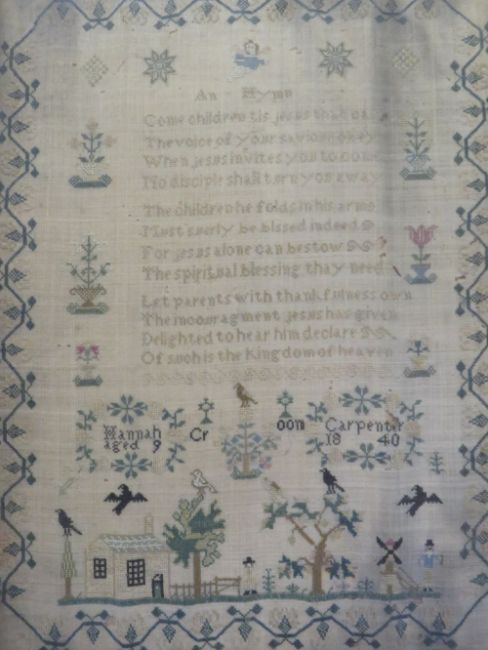 An Hymn
Come children tis jesus that
The voice of your saviour obey
When jesus invites you to come
No disciple shall turn you away
The children he folds in his arms
Must suerly be blssed indeed
For jesus alone can bestow
The spiritual blessing thay need
Let parents with thankfulness own
The incouragment jesus has given
Delighted to hear him declare
Of such is the kingdom of heaven
Hannah Cr oon Carpenter
aged 9 18 40